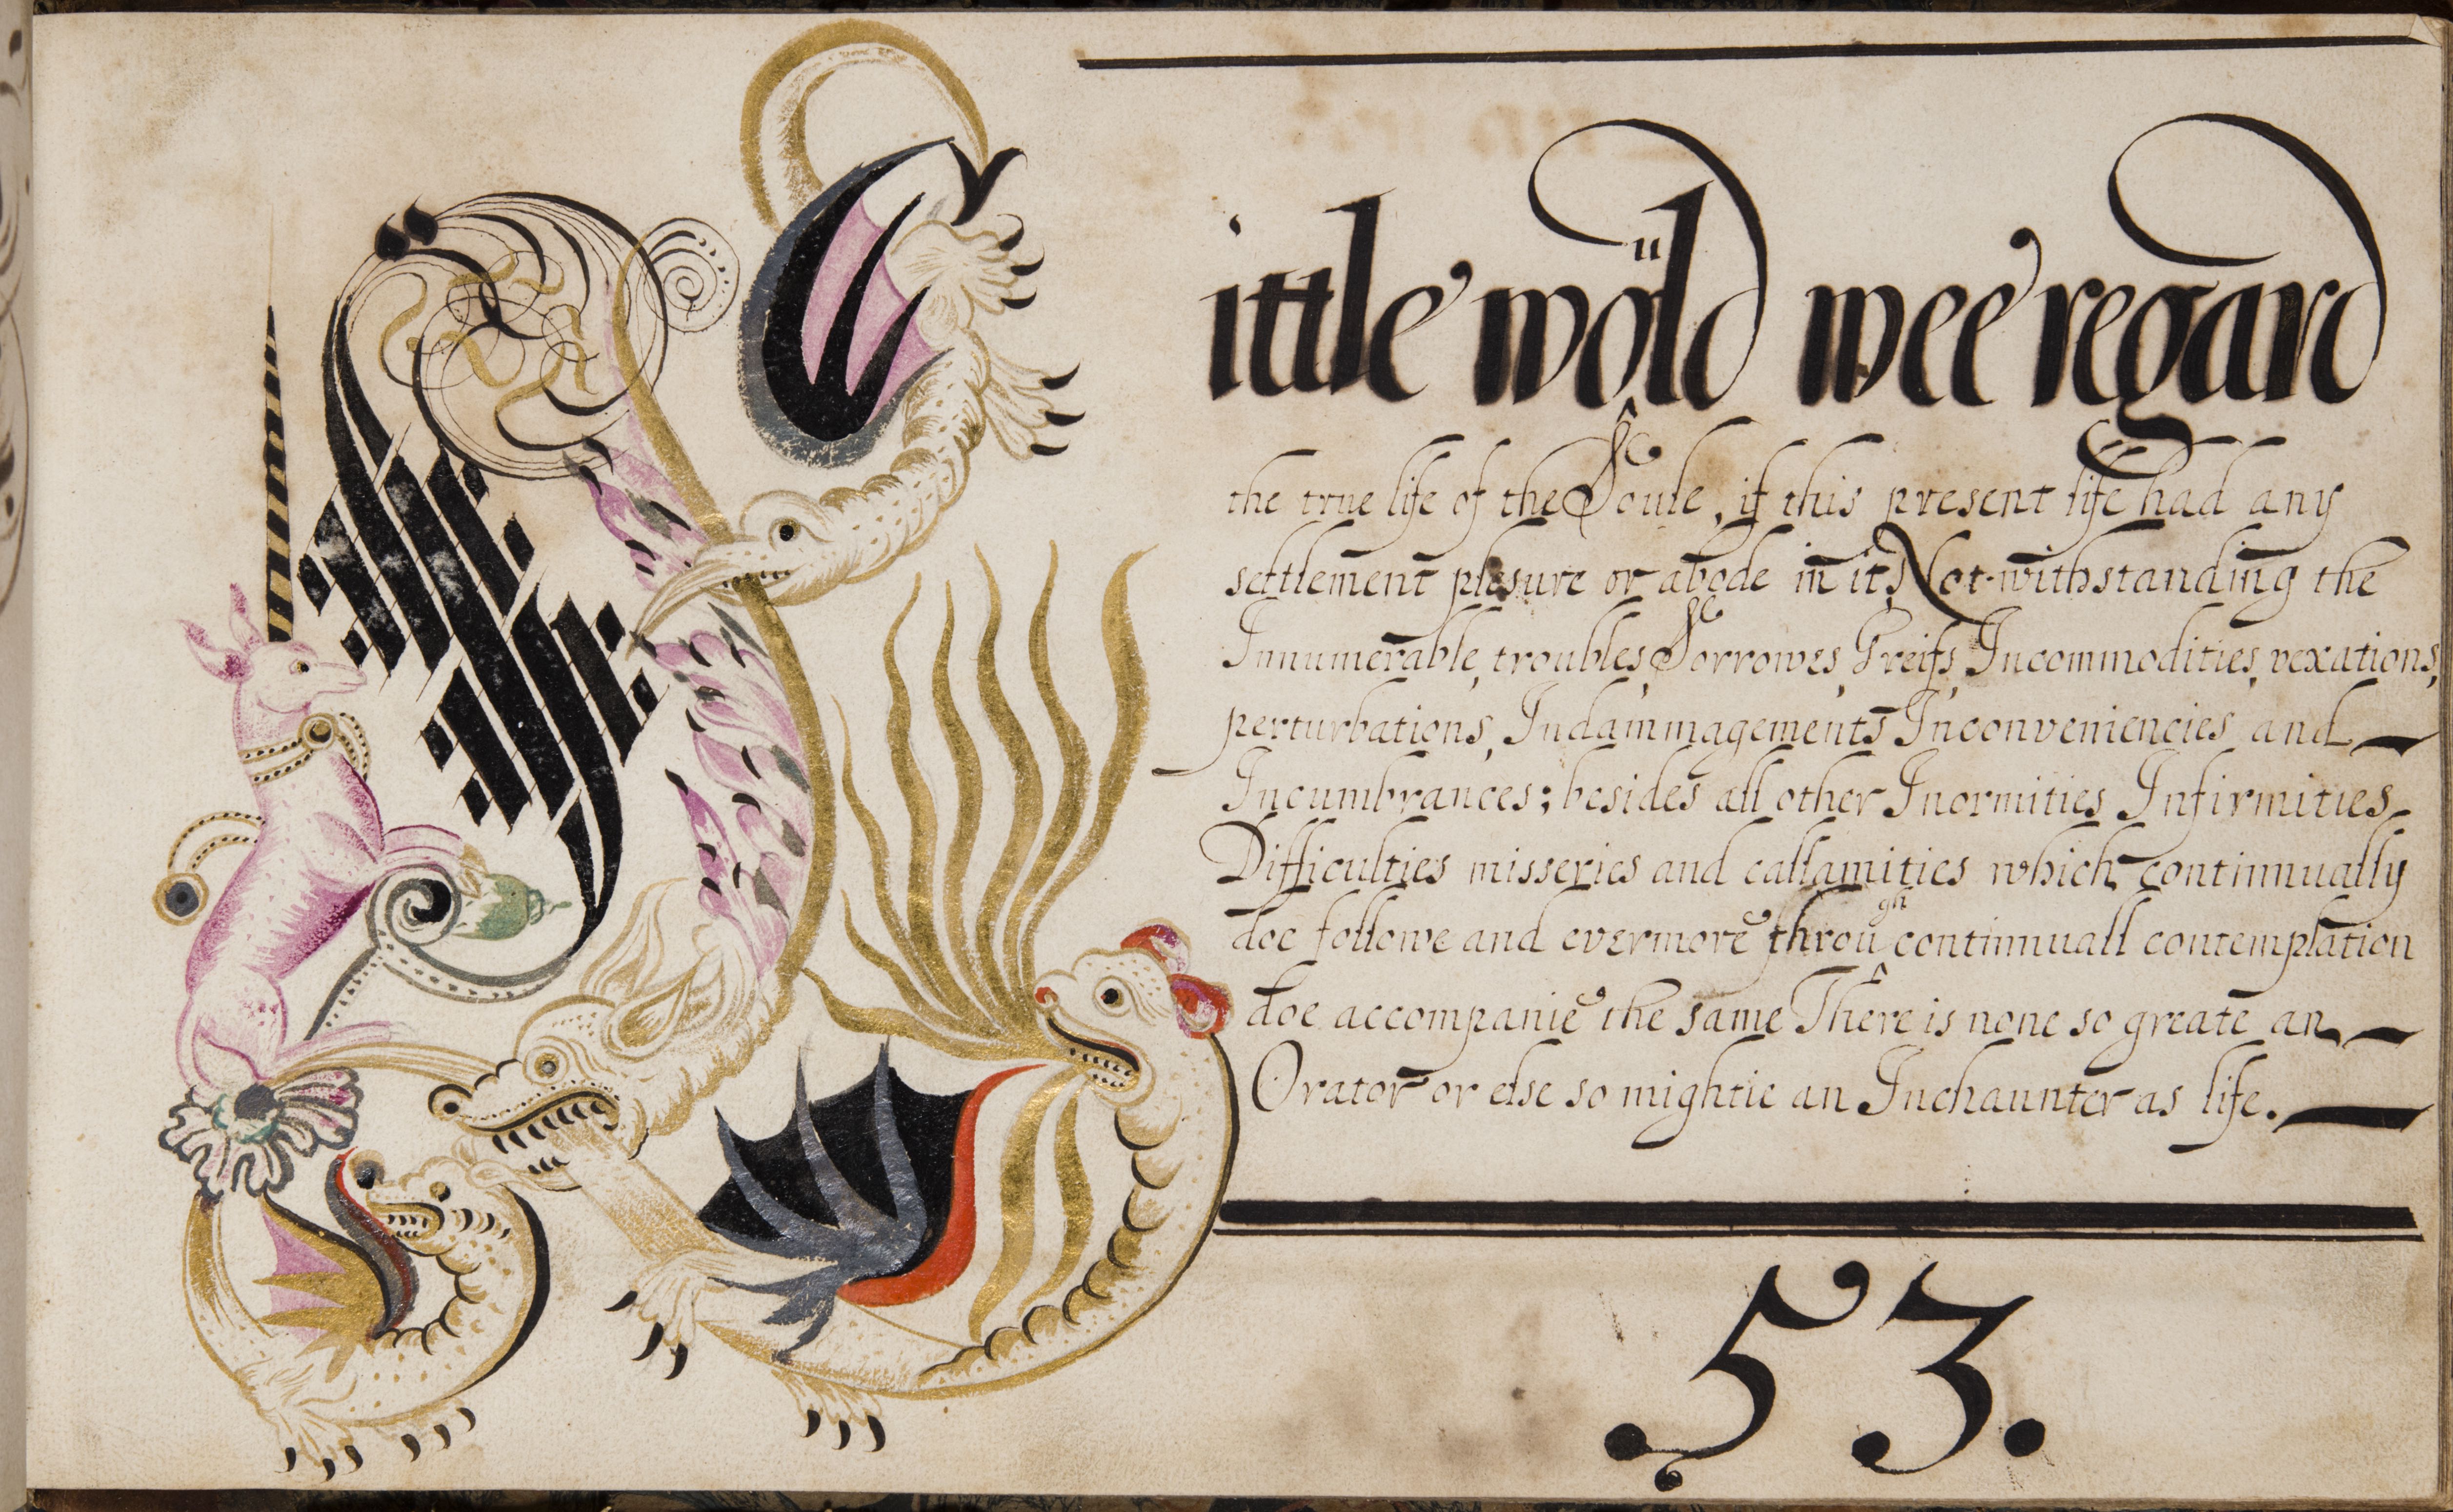 Little would wee regard
the true life of the Soule, if this present life had any
settlement plesure or abode in it, Not-withstanding the
Innumerable, troubles, Sorrowes, Greifs, Incommodities, vexations,
perturbations, Indammagements, Inconveniencies and
Incumbrances; besides all other Inormities Infirmities
Difficulties misseries and callamities which continnually
doe followe and evermore through continnuall contemplation
doe accompanie the same There is none so greate an
Orator or else so mightie an Inchaunter as life.
53.